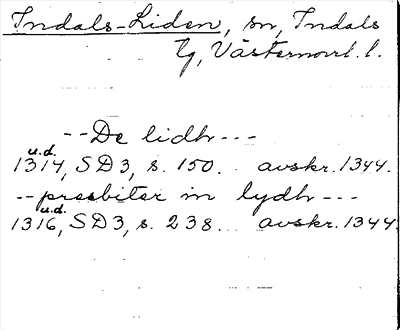 Indals-Liden, sn, Indals
tg, Västernorrl. l.
--De lidh---
u.d.
1314, SD3, s. 150. avskr. 1344.
--presbiter in lydh---
u.d.
1316, SD3, s. 238... avskr. 1344.